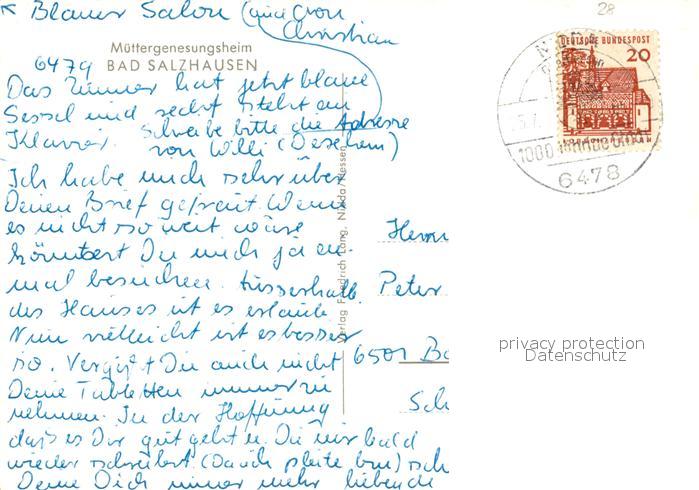 Blauer Salon (und von
Christian
Müttergenesungsheim
6479 BAD SALZHAUSEN
Das Zimmer hat jetzt blaue
Sessel und sechst steht ein
Klavier. Schreibe bitte die Adresse
von Willi
Ich habe mich sehr über
Deinen Brief gefreut. Wenn
es nicht so weit wäre
könntest Du mich ja ein-
mal besuchen. Ausserhalb
des Hauses ist es erlaubt.
Nun vielleicht ist es besser
so. Vergißt Du auch nicht
Deine Tabletten immer zu
nehmen. In der Hoffnung
dass es Dir gut geht u. Du mir bald
wieder schreibst. (Da ich pleite bin) sch
Deine Dich immer mehr liebende
Verlag Friedrich Lang, Nidda/Hessen
Herrn
Peter
6501 Bo
Sch
28
DEUTSCHE BUNDESPOST
20
6478
privacy protection
Datenschutz